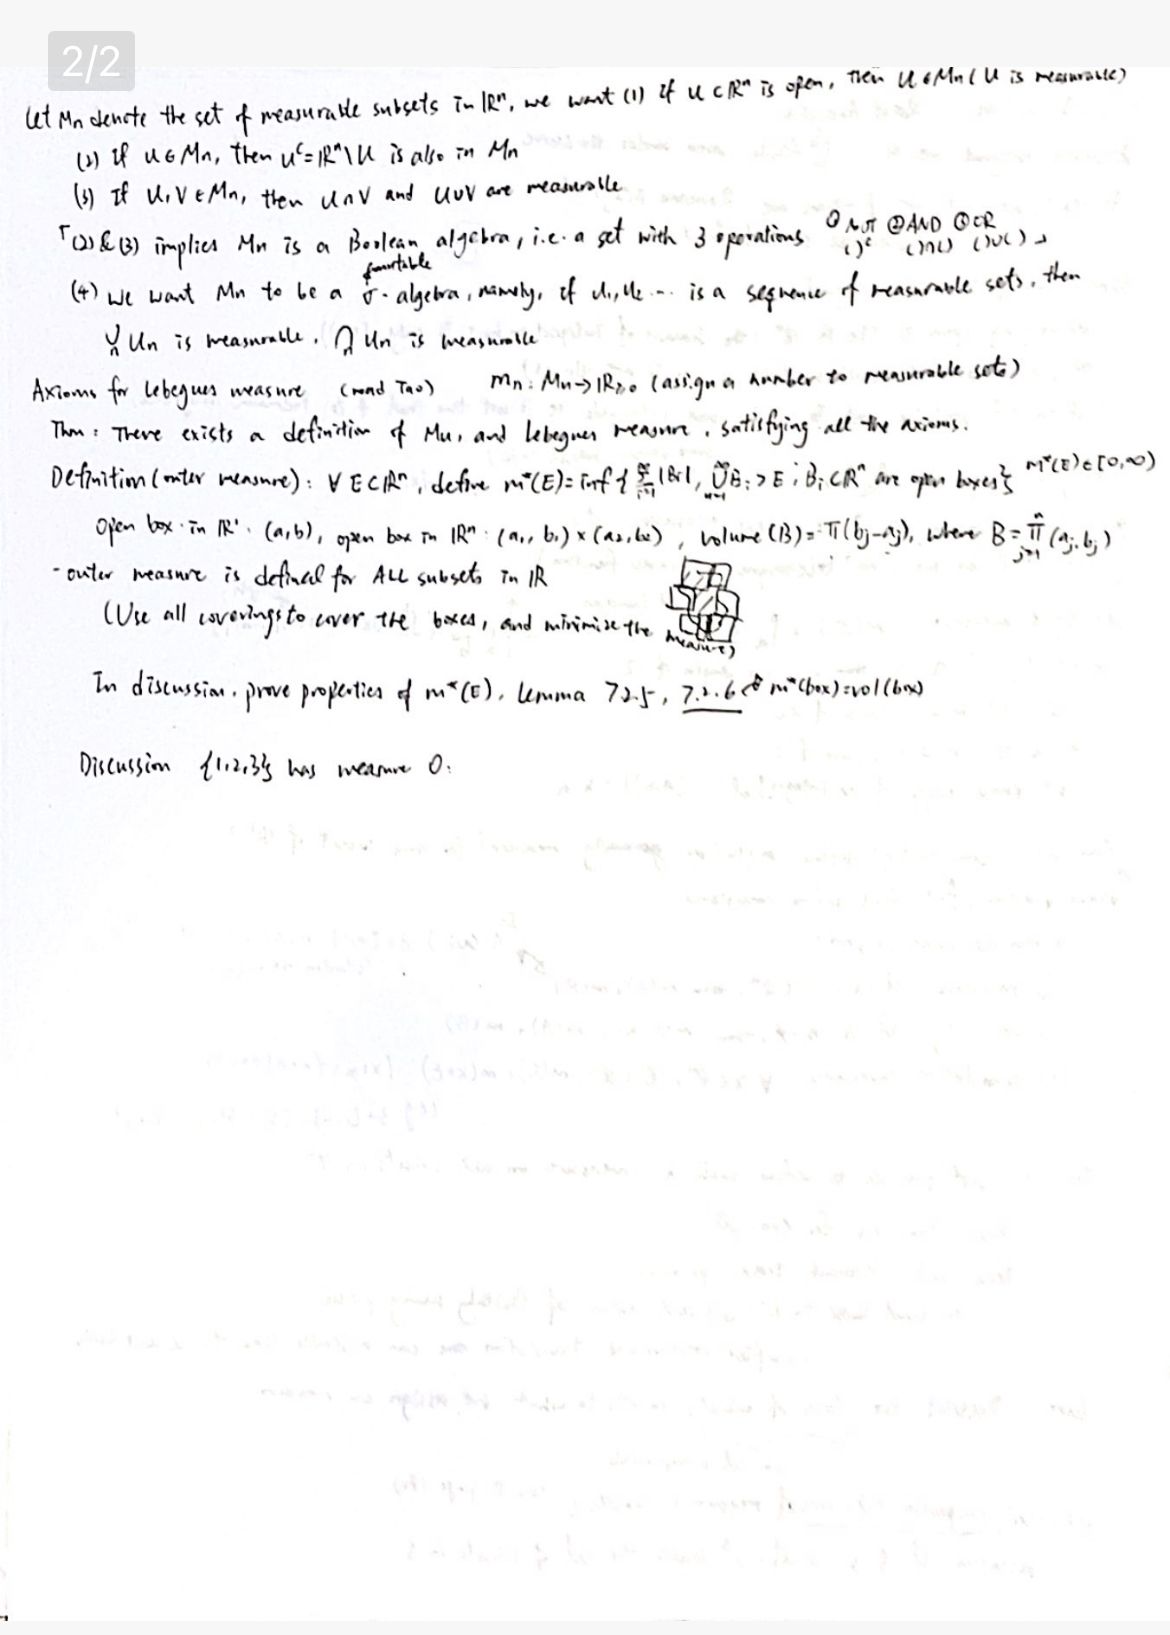 2/2
Let Mn denote the set of measurable subsets in ℝⁿ, we want (1) if U ⊂ ℝⁿ is open, then U ∈ Mn (U is measurable)
(2) If U ∈ Mn, then Uᶜ = ℝⁿ\U is also in Mn
(3) If U, V ∈ Mn, then U∩V and U∪V are measurable
「(2)&(3) implies Mn is a Boolean algebra, i.e. a set with 3 operations ① NOT ② AND ③ OR
()ᶜ ()∩() ()∪() 」
countable
(4) We want Mn to be a σ-algebra, namely, if U₁, U₂ ... is a sequence of measurable sets, then
⋃n Un is measurable, ⋂n Un is measurable
Axioms for Lebegues measure (read Tao) mn: Mn → ℝ≥0 (assign a number to measurable sets)
Thm: There exists a definition of Mn, and Lebegues measure, satisfying all the axioms.
Definition (outer measure): ∀ E⊂ℝⁿ, define m*(E) = inf { Σ |Bi|, ∪Bi ⊃ E; Bi ⊂ ℝⁿ are open boxes} m*(E) ∈ [0,∞)
Open box in ℝ¹: (a,b), open box in ℝⁿ: (a₁, b₁) × (a₂, b₂), volume (B) = Π(bj-aj), where B = Π (aj, bj)
- outer measure is defined for ALL subsets in ℝ
(Use all coverings to cover the boxes, and minimize the measure)
In discussion, prove properties of m*(E), Lemma 7.2.5, 7.2.6 m*(box)=vol(box)
Discussion {1,2,3} has measure 0.